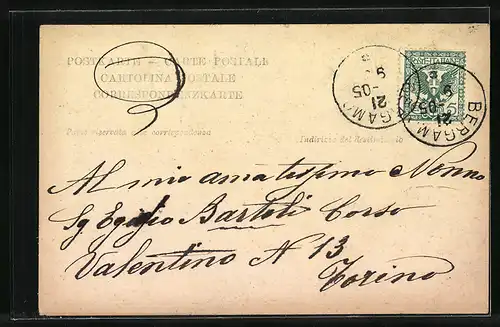 POSTKARTE — CARTE POSTALE
CARTOLINA POSTALE
CORRESPONDENZKARTE
Parte riservata alla corrispondenza
Indirizzo del Destinatario
BERGAMO
21
-05
9
BERGAMO
21
-05
9
5
Al mio amatissimo Nonno
Sg Egidio Bartoli Corso
Valentino N 13
Torino